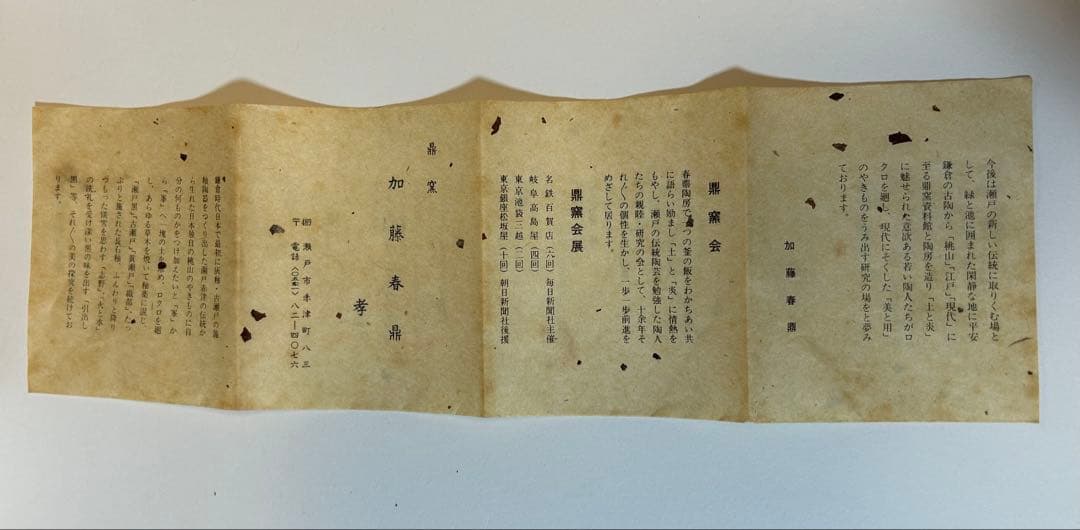 今後は瀬戸の新しい伝統に取りくむ場と
して、緑と池に囲まれた閑静な地に平安
鎌倉の古陶から「桃山」「江戸」「現代」に
至る鼎窯資料館と陶房を造り「土と炎」
に魅せられた意欲ある若い陶人たちがロ
クロを廻し、現代にそくした「美と用」
のやきものをうみ出す研究の場をと夢み
ております。
加藤春鼎
鼎窯会
春鼎陶房で一つの釜の飯をわかちあい共
に語らい励まし「土」と「炎」に情熱を
もやし、瀬戸の伝統陶芸を勉強した陶人
たちの親睦・研究の会として、十余年そ
れ〲の個性を生かし、一歩一歩前進を
めざして居ります。
鼎窯会展
名鉄百貨店(六回)毎日新聞社主催
岐阜高島屋(四回)
東京池袋三越(二回)
東京銀座松坂屋(十回)朝日新聞社後援
鼎窯
加藤春鼎
孝
瀬戸市赤津町八三
〒 電話(〇五六一)八二―四〇七六
鎌倉時代日本で最初に灰釉・古瀬戸の施
釉陶器をつくり出した瀬戸赤津の伝統か
ら生れた日本独自の桃山のやきものに自
分の何ものかをつけ加えたいと「峯」か
ら「峯」へ一塊の土を 、ロクロを廻
し、あらゆる草木を焼いて釉薬に混じ、
「瀬戸黒」「古瀬戸」「黄瀬戸」「織部」た
ぶりと施された長石釉、ふんわりと降り
つもった積雪を思わす「志野」、火と水
の洗礼を受け深い黒の味を出す「引出し
黒」等、それ〲の美の探究を続けてお
ります。